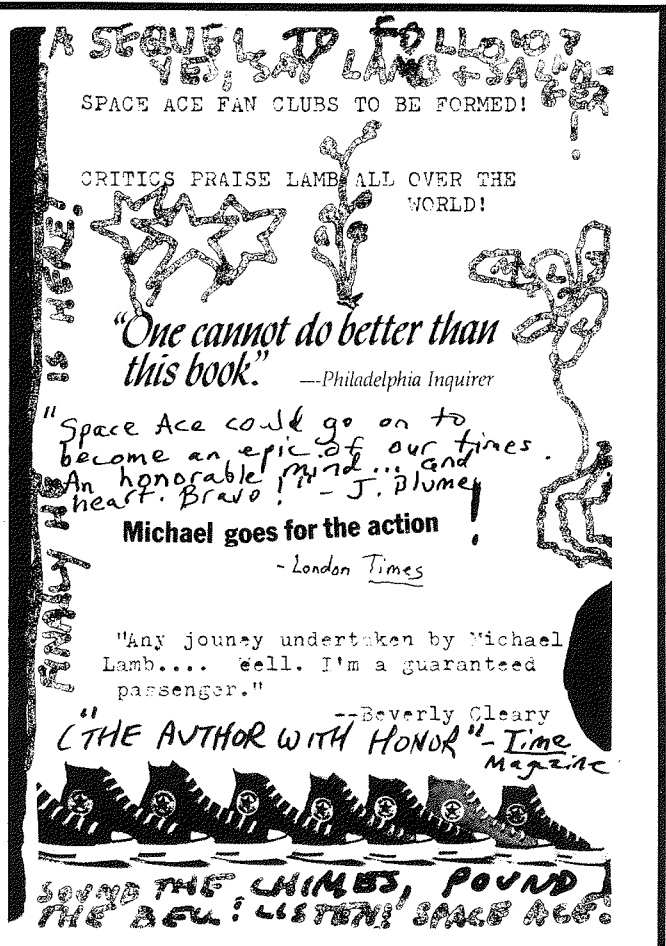 A SEQUEL TO FOLLOW?
YES, SAY LAMB + SALIN-
GER!
SPACE ACE FAN CLUBS TO BE FORMED!
CRITICS PRAISE LAMB ALL OVER THE
WORLD!
FINALLY HE IS HERE!
"One cannot do better than
this book."
—-Philadelphia Inquirer
"Space Ace could go on to
become an epic of our times.
An honorable mind... and
heart. Bravo!" - J. Blume!
Michael goes for the action
- London Times
"Any jouney undertaken by Michael
Lamb.... Well. I'm a guaranteed
passenger."
--Beverly Cleary
("THE AUTHOR WITH HONOR" - Time
Magazine
SOUND THE CHIMES, POUND
THE BELL! LISTEN! SPACE ACE.